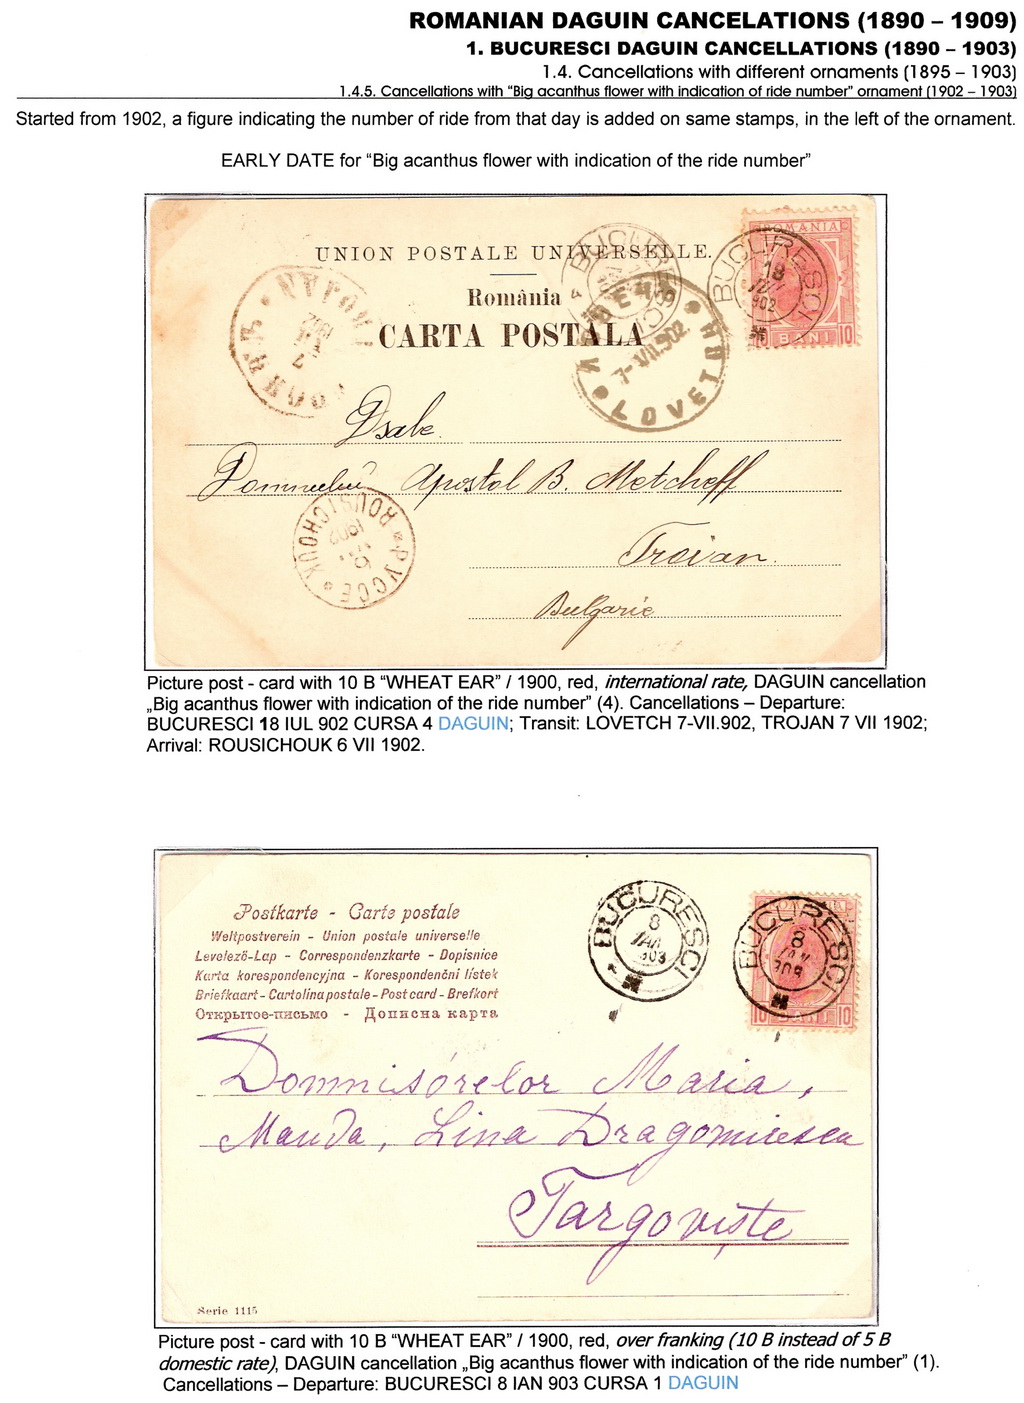 ROMANIAN DAGUIN CANCELATIONS (1890 – 1909)
1. BUCURESCI DAGUIN CANCELLATIONS (1890 – 1903)
1.4. Cancellations with different ornaments (1895 – 1903)
1.4.5. Cancellations with “Big acanthus flower with indication of ride number” ornament (1902 – 1903)
Started from 1902, a figure indicating the number of ride from that day is added on same stamps, in the left of the ornament.
EARLY DATE for “Big acanthus flower with indication of the ride number”
UNION POSTALE UNIVERSELLE.
România
CARTA POSTALA
ROMANIA
10 BANI 10
BUCURESCI
18
902
4 BUCURESCI
7-VII.902
LOVETCH
1902
7
Dsale
Domnului Apostol B. Metcheff
Troian.
Bulgarie
ROUSTCHOUK * РУССЕ
1902
Picture post - card with 10 B “WHEAT EAR” / 1900, red, international rate, DAGUIN cancellation
„Big acanthus flower with indication of the ride number” (4). Cancellations – Departure:
BUCURESCI 18 IUL 902 CURSA 4 DAGUIN; Transit: LOVETCH 7-VII.902, TROJAN 7 VII 1902;
Arrival: ROUSICHOUK 6 VII 1902.
Postkarte - Carte postale
Weltpostverein - Union postale universelle
Levelező-Lap - Correspondenzkarte - Dopisnice
Karta korespondencyjna - Korespondenčni listek
Briefkaart - Cartolina postale - Post card - Brefkort
Открытое-письмо - Дописна карта
BUCURESCI
8
IAN
903
BUCURESCI
8
IAN
903
ROMANIA
10 BANI 10
Domnisórelor Maria,
Manda, Lina Dragomirescu
Targoviște
Serie 1115
Picture post - card with 10 B “WHEAT EAR” / 1900, red, over franking (10 B instead of 5 B
domestic rate), DAGUIN cancellation „Big acanthus flower with indication of the ride number” (1).
Cancellations – Departure: BUCURESCI 8 IAN 903 CURSA 1 DAGUIN